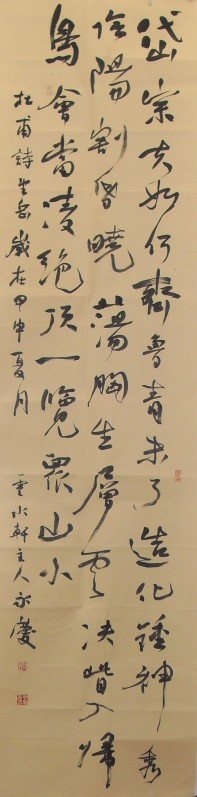 岱宗夫如何齊魯青未了造化鍾神秀
陰陽割昏曉蕩胸生層雲决眥入歸
鳥會當凌絕頂一覽眾山小
杜甫詩望岳歲在甲申夏月
雲水軒主人永慶